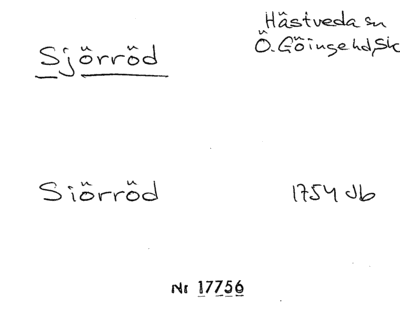 Hästveda sn
Sjörröd Ö. Göinge hd, Sk
Siörröd 1754 Jb
Nr 17756